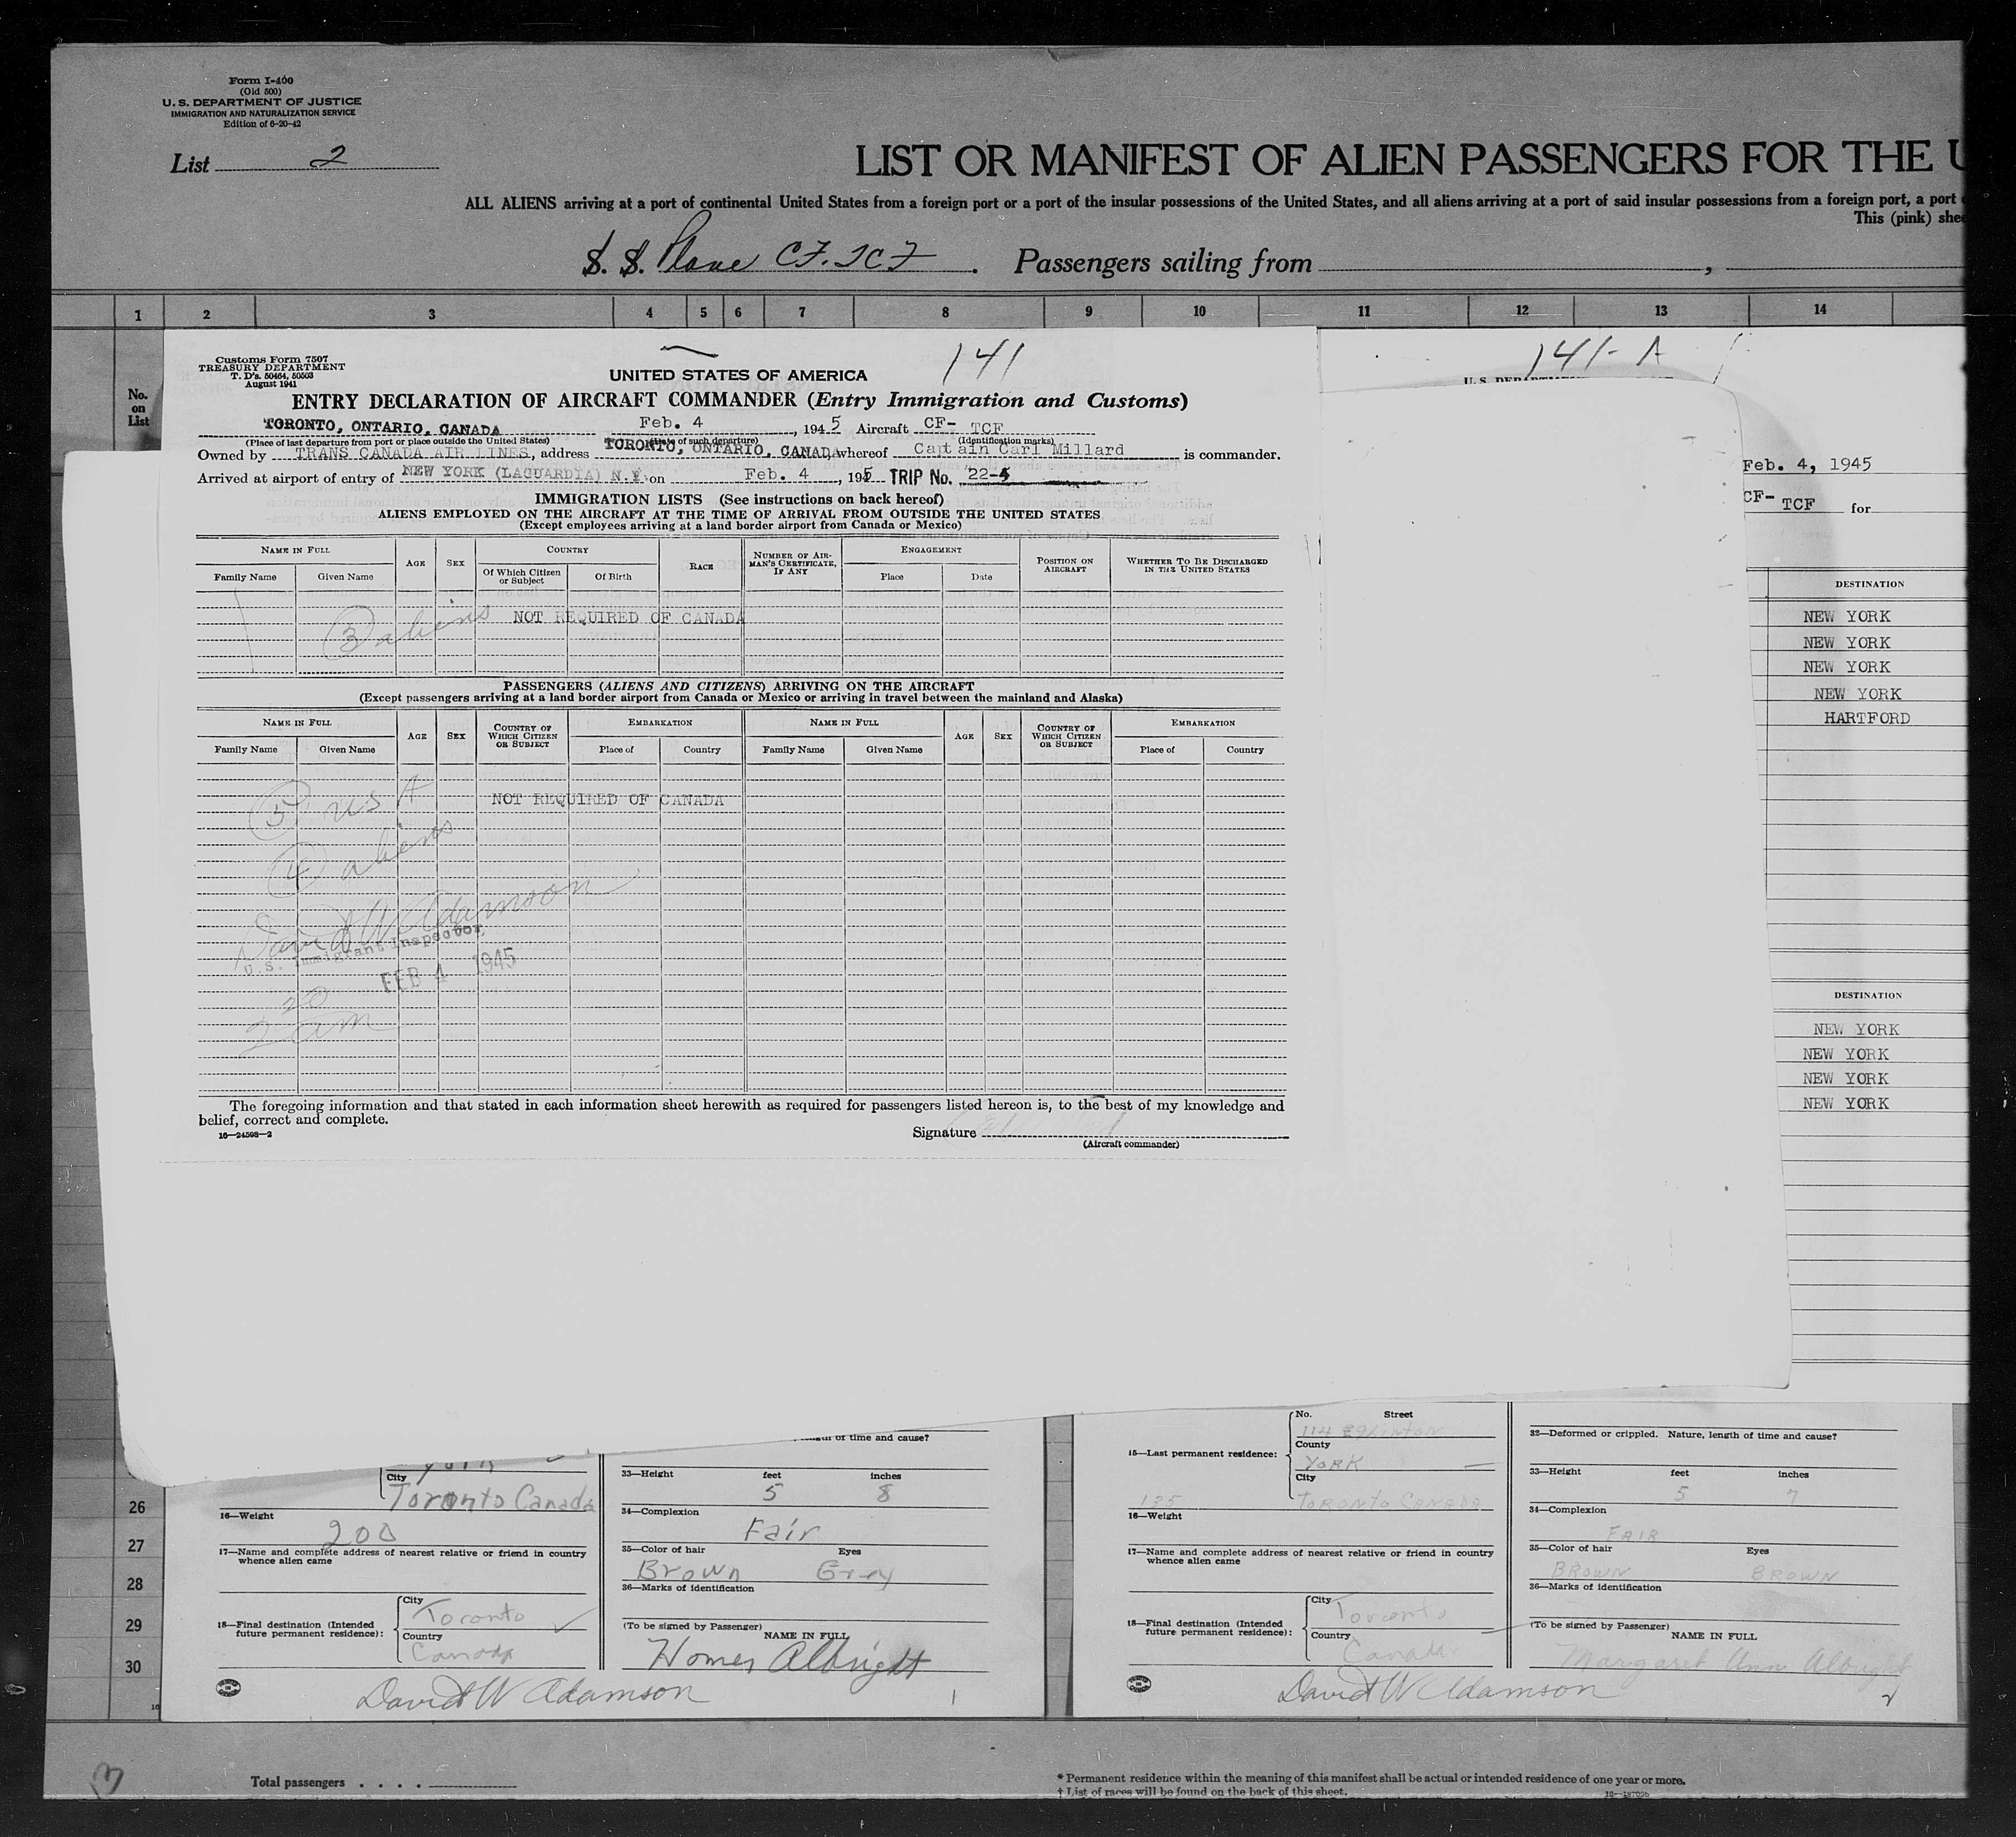 Form I-400
(Old 500)
U. S. DEPARTMENT OF JUSTICE
IMMIGRATION AND NATURALIZATION SERVICE
Edition of 6-20-42
List 2
LIST OR MANIFEST OF ALIEN PASSENGERS FOR THE U
ALL ALIENS arriving at a port of continental United States from a foreign port or a port of the insular possessions of the United States, and all aliens arriving at a port of said insular possessions from a foreign port, a port
This (pink) shee
S. S. Plane CF. TCF . Passengers sailing from ,
1 2 3 4 5 6 7 8 9 10 11 12 13 14
No. on List
Customs Form 7507
TREASURY DEPARTMENT
T. D's. 50464, 50503
August 1941
141
UNITED STATES OF AMERICA
ENTRY DECLARATION OF AIRCRAFT COMMANDER (Entry Immigration and Customs)
TORONTO, ONTARIO, CANADA Feb. 4, 1945 Aircraft CF- TCF
(Place of last departure from port or place outside the United States) (Date of such departure) (Identification marks)
Owned by TRANS CANADA AIR LINES, address TORONTO, ONTARIO, CANADA whereof Captain Carl Millard is commander.
Arrived at airport of entry of NEW YORK (LAGUARDIA) N.Y. on Feb. 4, 1945 TRIP No. 22-
IMMIGRATION LISTS (See instructions on back hereof)
ALIENS EMPLOYED ON THE AIRCRAFT AT THE TIME OF ARRIVAL FROM OUTSIDE THE UNITED STATES
(Except employees arriving at a land border airport from Canada or Mexico)
NAME IN FULL AGE SEX COUNTRY RACE NUMBER OF AIRMAN'S CERTIFICATE, IF ANY ENGAGEMENT POSITION ON AIRCRAFT WHETHER TO BE DISCHARGED IN THE UNITED STATES
Family Name Given Name Of Which Citizen or Subject Of Birth Place Date
3 aliens NOT REQUIRED OF CANADA
PASSENGERS (ALIENS AND CITIZENS) ARRIVING ON THE AIRCRAFT
(Except passengers arriving at a land border airport from Canada or Mexico or arriving in travel between the mainland and Alaska)
NAME IN FULL AGE SEX COUNTRY OF WHICH CITIZEN OR SUBJECT EMBARKATION NAME IN FULL AGE SEX COUNTRY OF WHICH CITIZEN OR SUBJECT EMBARKATION
Family Name Given Name Place of Country Family Name Given Name Place of Country
5 USA NOT REQUIRED OF CANADA
4 aliens
David W Adamson
U.S. Immigrant Inspector
FEB 4 1945
The foregoing information and that stated in each information sheet herewith as required for passengers listed hereon is, to the best of my knowledge and
belief, correct and complete.
16—24598-2
Signature
(Aircraft commander)
141-A
Feb. 4, 1945
CF- TCF for
DESTINATION
NEW YORK
NEW YORK
NEW YORK
NEW YORK
HARTFORD
DESTINATION
NEW YORK
NEW YORK
NEW YORK
NEW YORK
26
27
28
29
30
of time and cause?
City Toronto Canada
16—Weight 200
17—Name and complete address of nearest relative or friend in country
whence alien came
18—Final destination (Intended
future permanent residence):
City Toronto
Country Canada
33—Height feet inches
5 8
34—Complexion
Fair
35—Color of hair Eyes
Brown Grey
36—Marks of identification
(To be signed by Passenger)
NAME IN FULL
Homer Albright
David W Adamson 1
15—Last permanent residence:
No. Street
114 Eglinton
County
YORK
City
TORONTO CANADA
135
16—Weight
17—Name and complete address of nearest relative or friend in country
whence alien came
18—Final destination (Intended
future permanent residence):
City Toronto
Country Canada
32—Deformed or crippled. Nature, length of time and cause?
33—Height feet inches
5 7
34—Complexion
FAIR
35—Color of hair Eyes
BROWN BROWN
36—Marks of identification
(To be signed by Passenger)
NAME IN FULL
Margaret Ann Albright
David W Adamson 2
Total passengers . . . .
* Permanent residence within the meaning of this manifest shall be actual or intended residence of one year or more.
† List of races will be found on the back of this sheet.